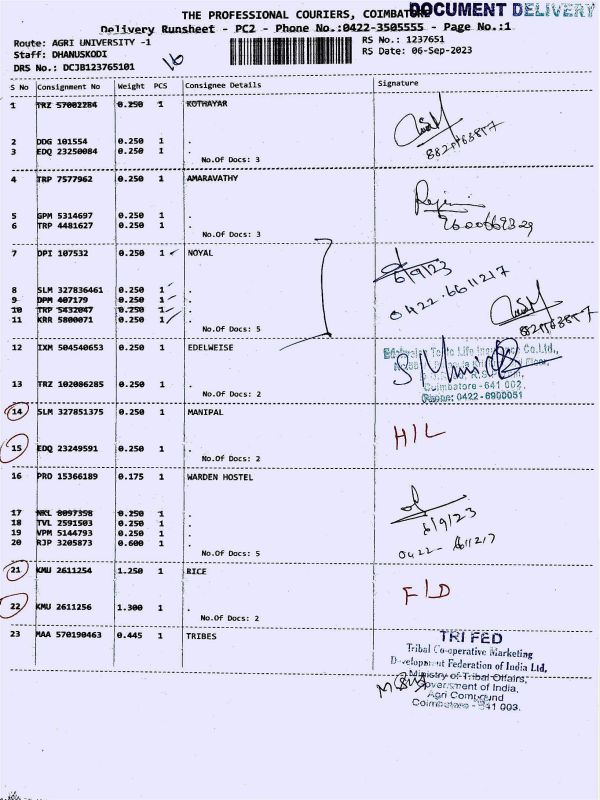 DOCUMENT DELIVERY
THE PROFESSIONAL COURIERS, COIMBATORE
Delivery Runsheet - PC2 - Phone No.:0422-3505555 - Page No.:1
Route: AGRI UNIVERSITY -1 RS No.: 1237651
Staff: DHANUSKODI RS Date: 06-Sep-2023
DRS No.: DCJB123765101
S No Consignment No Weight PCS Consignee Details Signature
1 TRZ 57002284 0.250 1 KOTHAYAR
2 DDG 101554 0.250 1 .
3 EDQ 23250084 0.250 1 .
No.Of Docs: 3
4 TRP 7577962 0.250 1 AMARAVATHY
5 GPM 5314697 0.250 1 .
6 TRP 4481627 0.250 1 .
No.Of Docs: 3
7 DPI 107532 0.250 1 NOYAL
6/9/23
0422-6611217
8 SLM 327836461 0.250 1 .
9 DPM 407179 0.250 1 .
10 TRP 5432047 0.250 1 .
11 KRR 5800071 0.250 1 .
No.Of Docs: 5
12 IXM 504540653 0.250 1 EDELWEISE
13 TRZ 102086285 0.250 1 .
No.Of Docs: 2
Coimbatore - 641 002.
Phone: 0422-6900051
14 SLM 327851375 0.250 1 MANIPAL
H/L
15 EDQ 23249591 0.250 1 .
No.Of Docs: 2
16 PRO 15366189 0.175 1 WARDEN HOSTEL
17 NKL 8097358 0.250 1 .
18 TVL 2591503 0.250 1 .
19 VPM 5144793 0.250 1 .
20 RJP 3205873 0.600 1 .
No.Of Docs: 5
6/9/23
21 KMU 2611254 1.250 1 RICE
F/D
22 KMU 2611256 1.300 1 .
No.Of Docs: 2
23 MAA 570190463 0.445 1 TRIBES
TRIFED
Tribal Co-operative Marketing
Development Federation of India Ltd,
Ministry of Tribal Affairs,
Government of India,
Agri Compound
Coimbatore - 641 003.